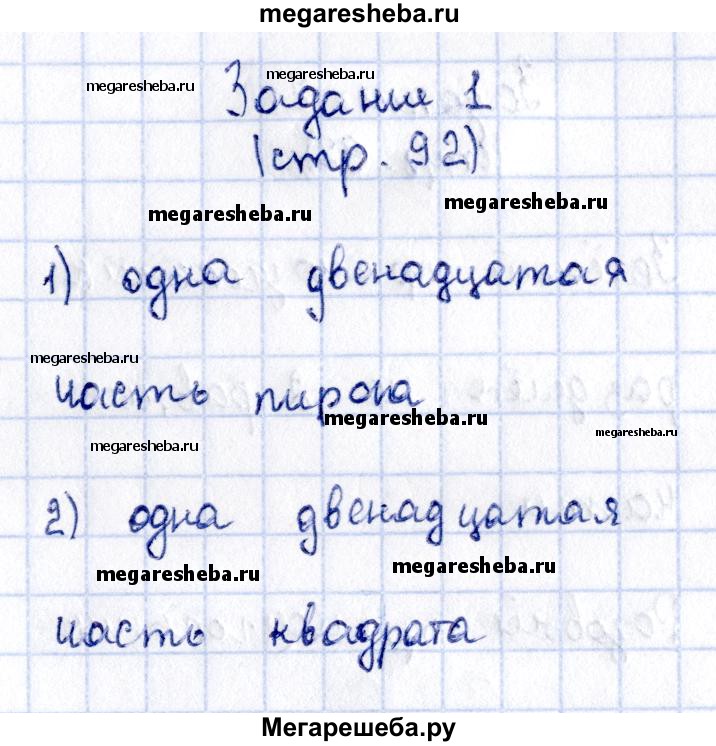 megaresheba.ru
megaresheba.ru megaresheba.ru
Задание 1
(стр. 92)
megaresheba.ru megaresheba.ru
1) одна двенадцатая
megaresheba.ru
часть пирога
megaresheba.ru
megaresheba.ru megaresheba.ru
2) одна двенадцатая
megaresheba.ru megaresheba.ru
часть квадрата
Мегарешеба.ру